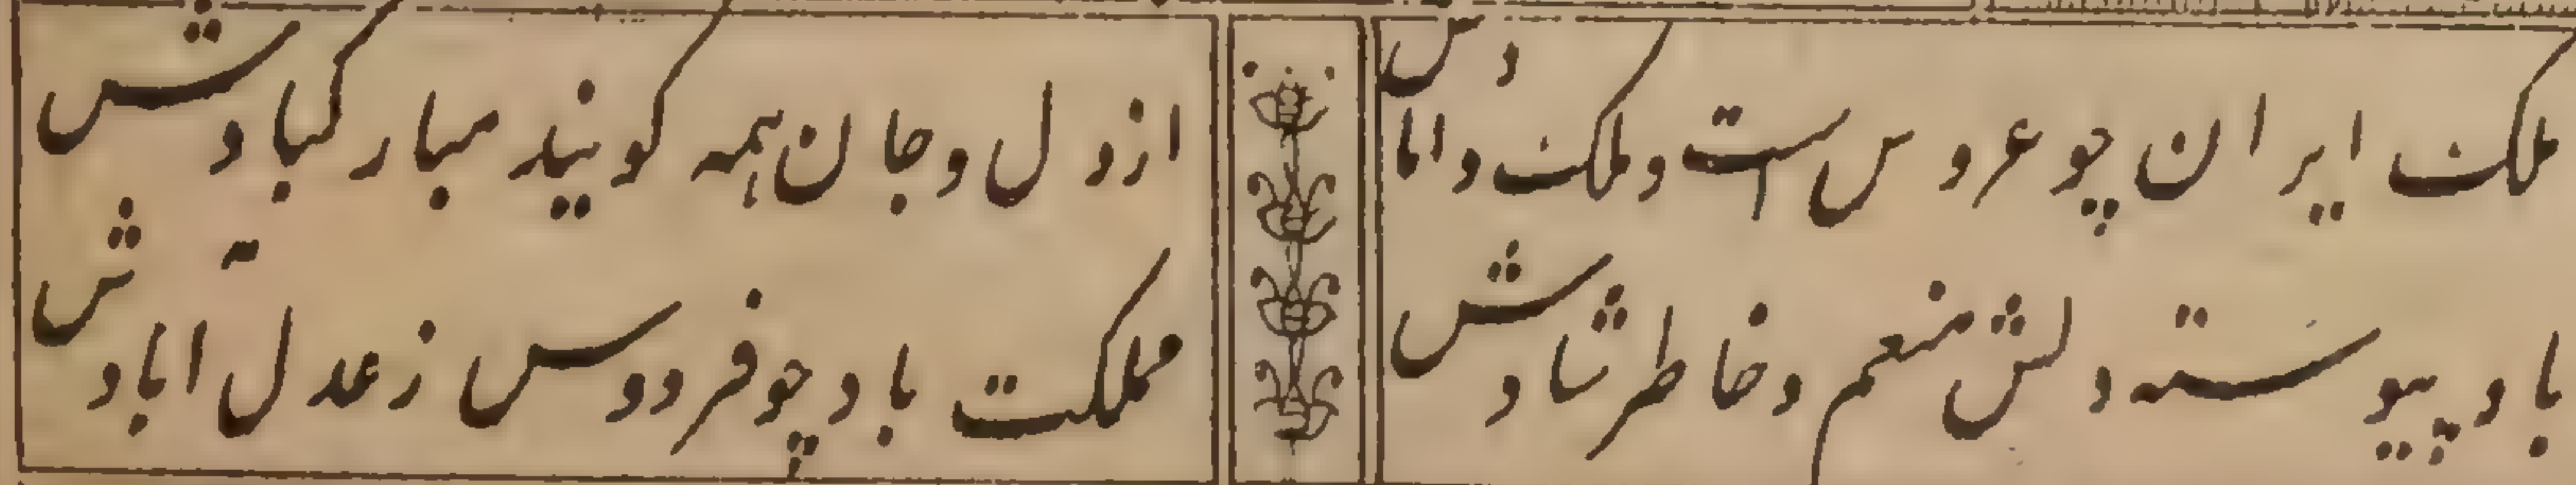 ملک ایران چو عروس است و ملک دامادش
از دل و جان همه کویند مبارکبادش
باد پیوسته دلش منعم و خاطر شادش
مملکت باد چو فردوس ز عدل ابادش